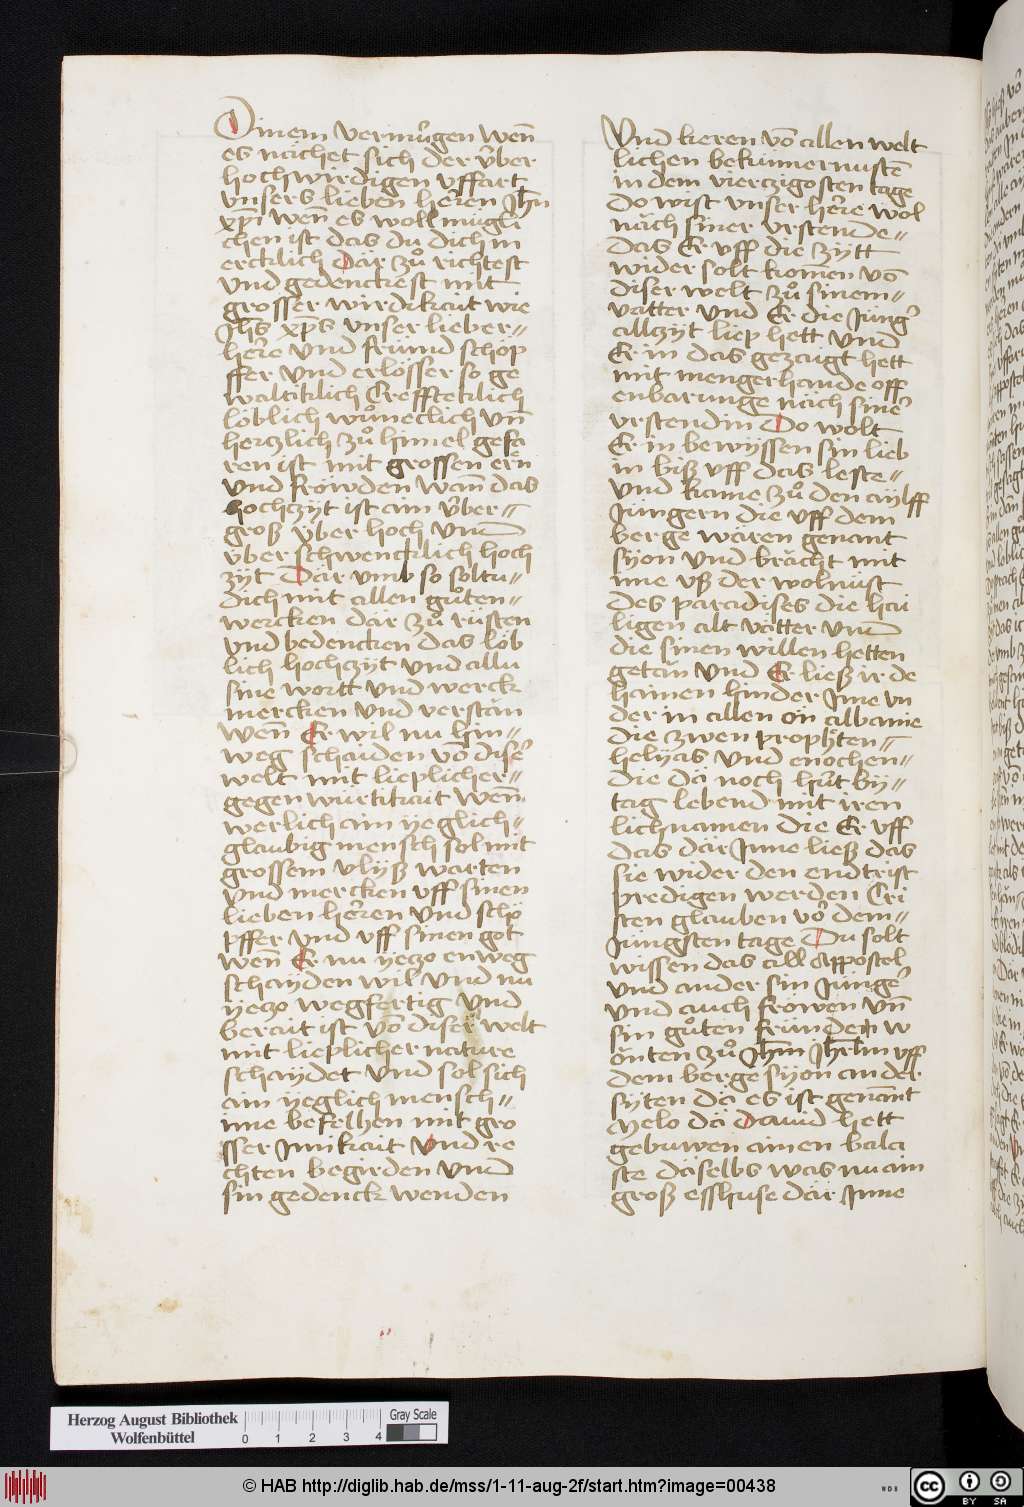 Dinem vermu̇gen wen̄
es nächet sich der v̇ber
hochwirdigen vffart
vnsers lieben heren Jhn̄
xp̄i wen̄ es woll mügli
chen ist das du dich in
ercklich där zů richtest
vnd gedenckest mit
grosser wirdikait wie
Jhs̄ xp̄s vnser lieber=
here vnd fründ schöp
ffer vnd erlösser so ge
waltiklich Creffteklich
löblich wůneclich vn̄
hertzlich zů himel gefa
ren ist mit grossen ern̄
vnd fröwden wan̄ das
hochzÿt ist ain v̇ber=
groß v̇ber hoch vnd
v̇ber schwencklich hoch
zÿt Dar vmb so soltu=
dich mit allen gůten=
wercken där zů rüsten
vnd bedencken das löb
lich hochzÿt vnd allu
sine wortt vnd werck
mercken vnd verstän
wen̄ Er wil nu hin=
weg schaiden vō diser
welt mit lieplicher=
gegen würtikait wen̄
werlich ain ÿeglich=
glaubig mensch sol mit
grossem vlÿß warten
vnd mercken vff sinen
lieben heren vnd schö
pffer vnd vff sinen got
wen̄ Er nu ÿeczo enweg
schaÿden wil vnd nu
ÿeczo wegfertig vnd
berait ist vō diser welt
mit lieplicher nature
schaÿdet vnd sol sich
ain ÿeglich mensch=
ime befelhen mit gro
sser Jnikait vnd re
chten begirden vnd
sin gedenck wenden
Vnd keren vō allen welt
lichen bekümernustē
in dem vierczigosten tage
Do wist vnser here wol
näch siner vrstende=
das Er vff die zÿtt
wider solt komen vō
diser welt zů sinem=
vatter vnd Er die Jünger
allzÿt liep hett vnd
Er in das gezaigt hett
mit mengerhande off
enbarunge näch siner
vrstendin Do wolt
Er in bewÿssen sin lieb
in biß vff das leste=
vnd kame zů den aÿlff
Jüngern die vff dem
berge wären genant
sÿon vnd brächt mit
ime vß der wolnüst
des paradises die hai
ligen alt vätter vnd
die sinen willen hetten
getän vnd Er ließ ir de
hainen hinder Jme vn
der in allen ön albaine
die zwen propheten=
helÿas vnd enochen=
die dä noch hüt bÿ=
tag lebend mit iren
lichnamen die Er vff
das där Jnne ließ das
sie wider den endtrist
predigen werden Cri
sten glauben vor dem=
Jüngsten tage Du solt
wissen das all Appostel
vnd ander sin Jünger
vnd auch fröwen vn̄
sin gůten fründen w
önten zů Jhm Jhrlm vff
dem berge sÿon an der
sÿten dä es ist genant
Melo dä dauid hett
gebuwen ainen bala
ste däselbs was nu ain
groß esshuse där Jnne
Herzog August Bibliothek
Wolfenbüttel
0 1 2 3 4
Gray Scale
© HAB http://diglib.hab.de/mss/1-11-aug-2f/start.htm?image=00438
WDB
CC BY SA